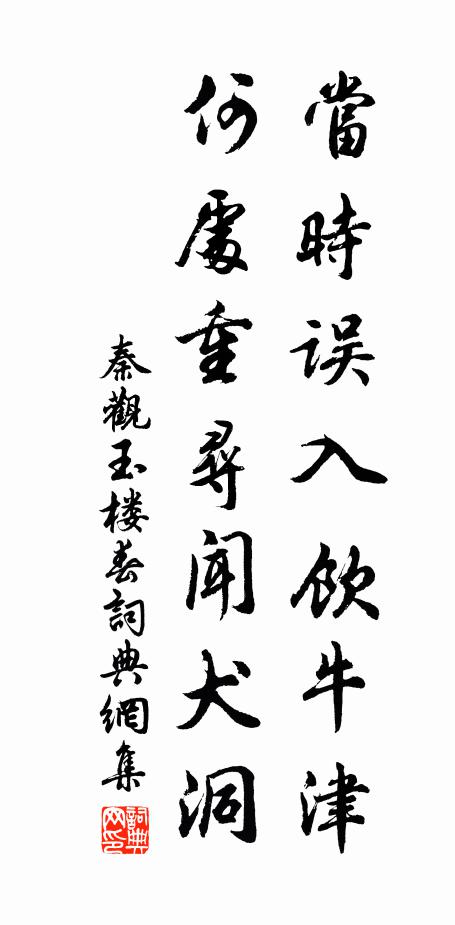 當時误入飲牛津
何處重尋聞犬洞
秦觀玉楼春詞典網集
詞典网印